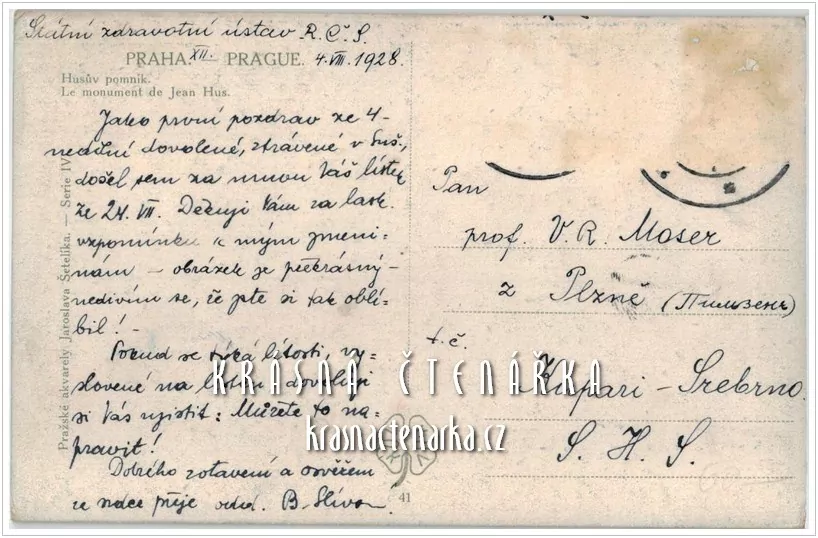 Státní zdravotní ústav R.Č.S.
PRAHA XII. PRAGUE. 4.VIII.1928
Husův pomník.
Le monument de Jean Hus.
Jako první pozdrav ze 4-
nedělní dovolené, ztrávené v Suš.,
došel sem za mnou Váš lístek
ze 24. VII. Děkuji Vám za lask.
vzpomínku k mým jmeni-
nám – obrázek je překrásný –
nedivím se, že jste si tak oblí-
bil! –
Pokud se týká lítosti, vy-
slovené na lístku dovoluji
si Vás ujistit: Můžete to na-
pravit!
Dobrého zotavení a osvěžen
ze srdce přeje odd. B. Slíva
Pražské akvarely Jaroslava Šetelíka. — Serie IV
Pan
prof. V. R. Moser
z Plzně (Пильзень)
t. č.
Kupari – Srebrno.
S. H. S.
41
KRÁSNÁ ČTENÁŘKA
krasnactenarka.cz